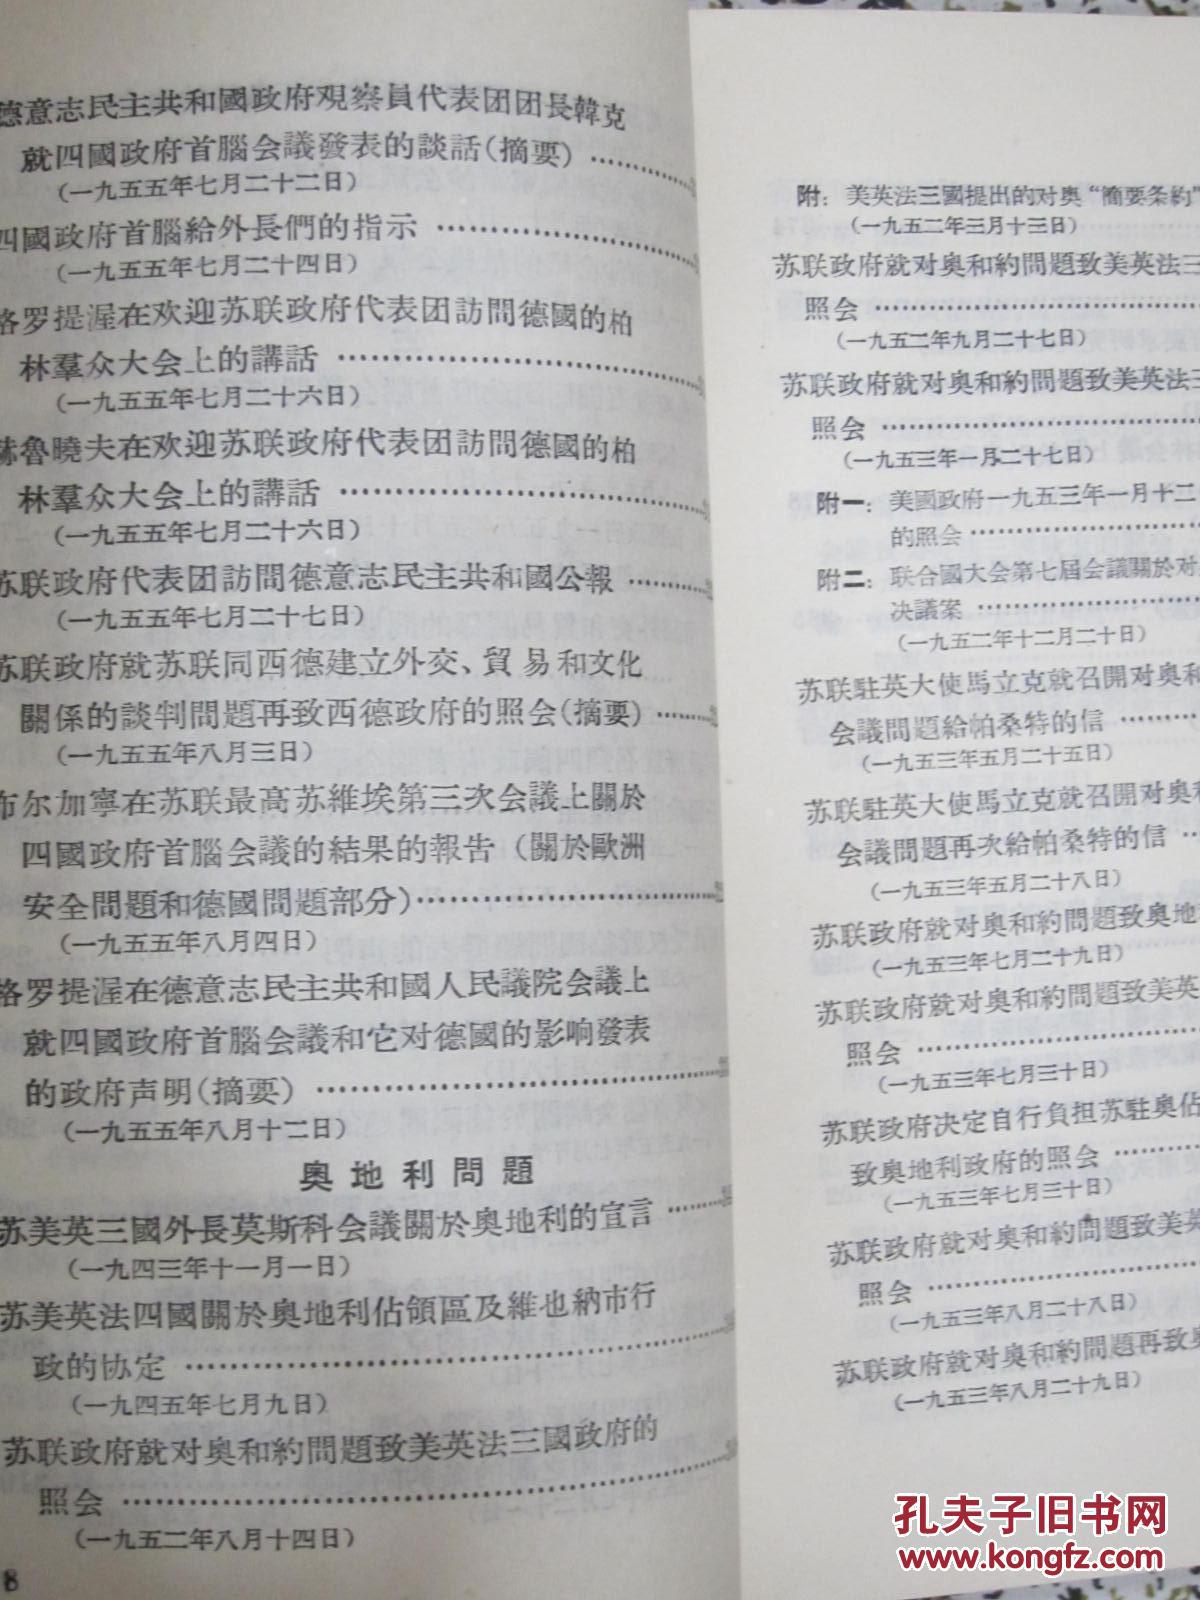 德意志民主共和國政府观察員代表团团長韓克
就四國政府首腦会議發表的談話(摘要)
(一九五五年七月二十二日)
四國政府首腦給外長們的指示
(一九五五年七月二十四日)
格罗提渥在欢迎苏联政府代表团訪問德國的柏
林羣众大会上的講話
(一九五五年七月二十六日)
赫魯曉夫在欢迎苏联政府代表团訪問德國的柏
林羣众大会上的講話
(一九五五年七月二十六日)
苏联政府代表团訪問德意志民主共和國公報
(一九五五年七月二十七日)
苏联政府就苏联同西德建立外交、貿易和文化
關係的談判問題再致西德政府的照会(摘要)
(一九五五年八月三日)
布尔加寧在苏联最高苏維埃第三次会議上關於
四國政府首腦会議的結果的報告(關於歐洲
安全問題和德國問題部分)
(一九五五年八月四日)
格罗提渥在德意志民主共和國人民議院会議上
就四國政府首腦会議和它对德國的影响發表
的政府声明(摘要)
(一九五五年八月十二日)
奧地利問題
苏美英三國外長莫斯科会議關於奧地利的宣言
(一九四三年十一月一日)
苏美英法四國關於奧地利佔領區及維也納市行
政的协定
(一九四五年七月九日)
苏联政府就对奧和約問題致美英法三國政府的
照会
(一九五二年八月十四日)
8
附：美英法三國提出的对奧“簡要条約”
(一九五二年三月十三日)
苏联政府就对奧和約問題致美英法三
照会
(一九五二年九月二十七日)
苏联政府就对奧和約問題致美英法三
照会
(一九五三年一月二十七日)
附一：美國政府一九五三年一月十二
的照会
附二：联合國大会第七屆会議關於对
决議案
(一九五二年十二月二十日)
苏联駐英大使馬立克就召開对奧和
会議問題給帕桑特的信
(一九五三年五月二十五日)
苏联駐英大使馬立克就召開对奧和
会議問題再次給帕桑特的信
(一九五三年五月二十八日)
苏联政府就对奧和約問題致奧地
(一九五三年七月二十九日)
苏联政府就对奧和約問題致美英
照会
(一九五三年七月三十日)
苏联政府决定自行負担苏駐奧佔
致奧地利政府的照会
(一九五三年七月三十日)
苏联政府就对奧和約問題致美英
照会
(一九五三年八月二十八日)
苏联政府就对奧和約問題再致奧
(一九五三年八月二十九日)
孔夫子旧书网
www.kongfz.com